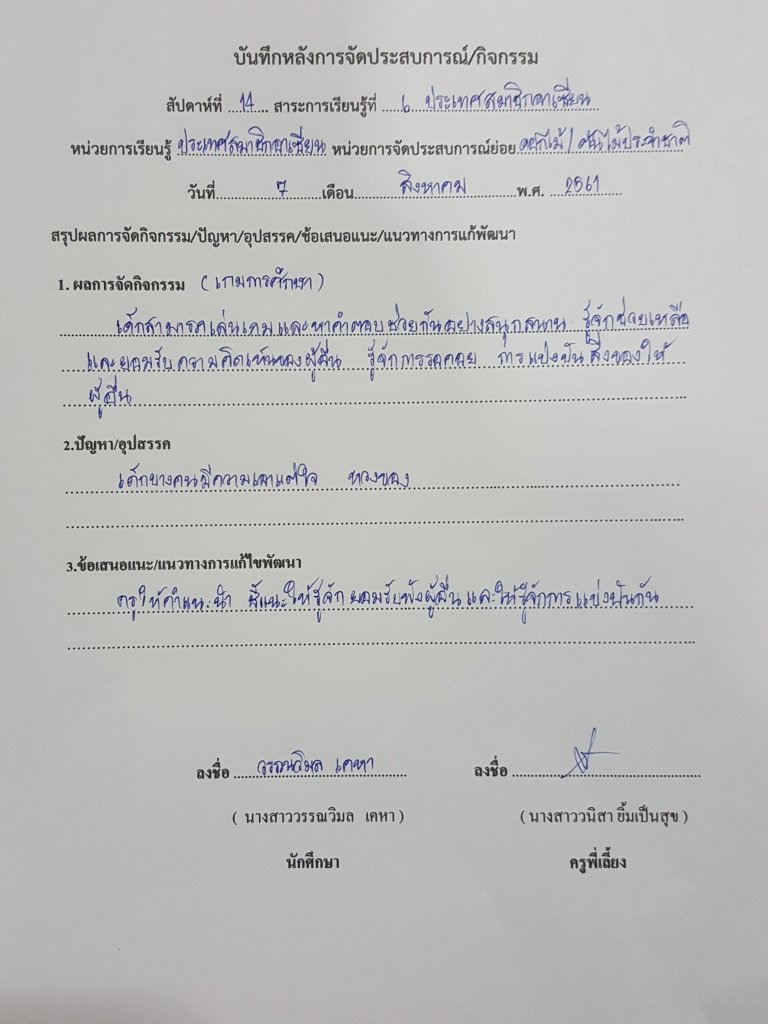 บันทึกหลังการจัดประสบการณ์/กิจกรรม
สัปดาห์ที่ ....14.... สาระการเรียนรู้ที่ ..6.. ประเทศสมาชิกอาเซียน
หน่วยการเรียนรู้ ประเทศสมาชิกอาเซียน หน่วยการจัดประสบการณ์ย่อย ดอกไม้/ต้นไม้ประจำชาติ
วันที่ 7 เดือน สิงหาคม พ.ศ. 2561
สรุปผลการจัดกิจกรรม/ปัญหา/อุปสรรค/ข้อเสนอแนะ/แนวทางการแก้พัฒนา
1. ผลการจัดกิจกรรม (เกมการศึกษา)
เด็กสามารถเล่นเกมและหาคำตอบช่วยกันอย่างสนุกสนาน รู้จักช่วยเหลือ
และยอมรับความคิดเห็นของผู้อื่น รู้จักการรอคอย การแบ่งปันสิ่งของให้
ผู้อื่น
2.ปัญหา/อุปสรรค
เด็กบางคนมีความเอาแต่ใจ หวงของ
3.ข้อเสนอแนะ/แนวทางการแก้ไขพัฒนา
ครูให้คำแนะนำ ชี้แนะให้รู้จักยอมรับฟังผู้อื่นและให้รู้จักการแบ่งปันกัน
ลงชื่อ วรรณวิมล เคหา ลงชื่อ
( นางสาววรรณวิมล เคหา ) (นางสาววนิสา ยิ้มเป็นสุข )
นักศึกษา ครูพี่เลี้ยง